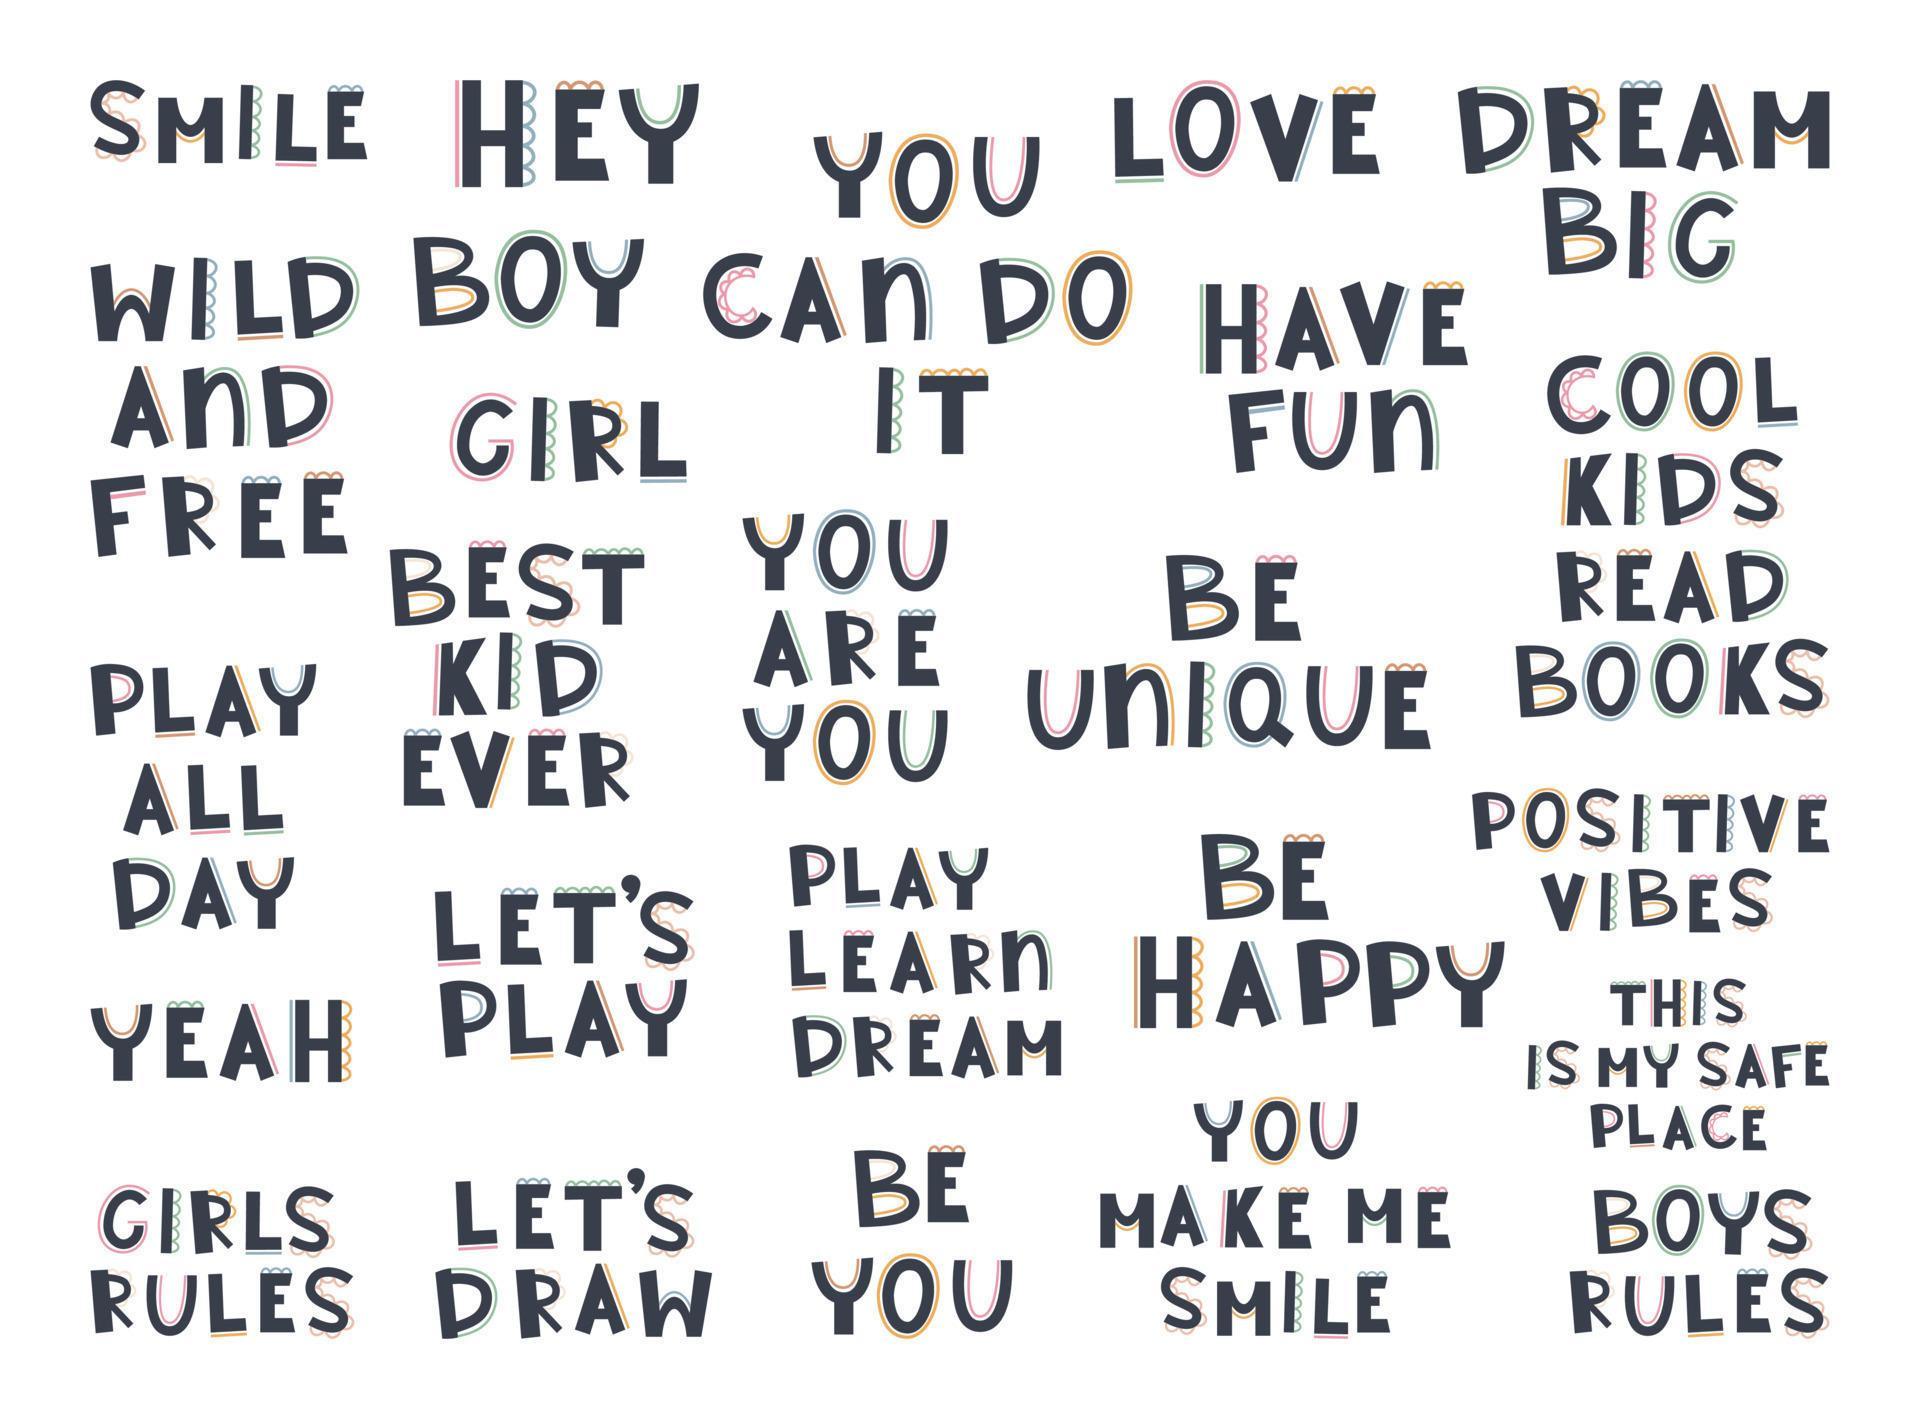 SMILE
HEY
YOU
CAN DO
IT
LOVE
DREAM
BIG
WILD
AND
FREE
BOY
GIRL
HAVE
FUN
COOL
KIDS
READ
BOOKS
BEST
KID
EVER
YOU
ARE
YOU
BE
UNIQUE
PLAY
ALL
DAY
POSITIVE
VIBES
LET'S
PLAY
PLAY
LEARN
DREAM
BE
HAPPY
YEAH
THIS
IS MY SAFE
PLACE
GIRLS
RULES
LET'S
DRAW
BE
YOU
YOU
MAKE ME
SMILE
BOYS
RULES